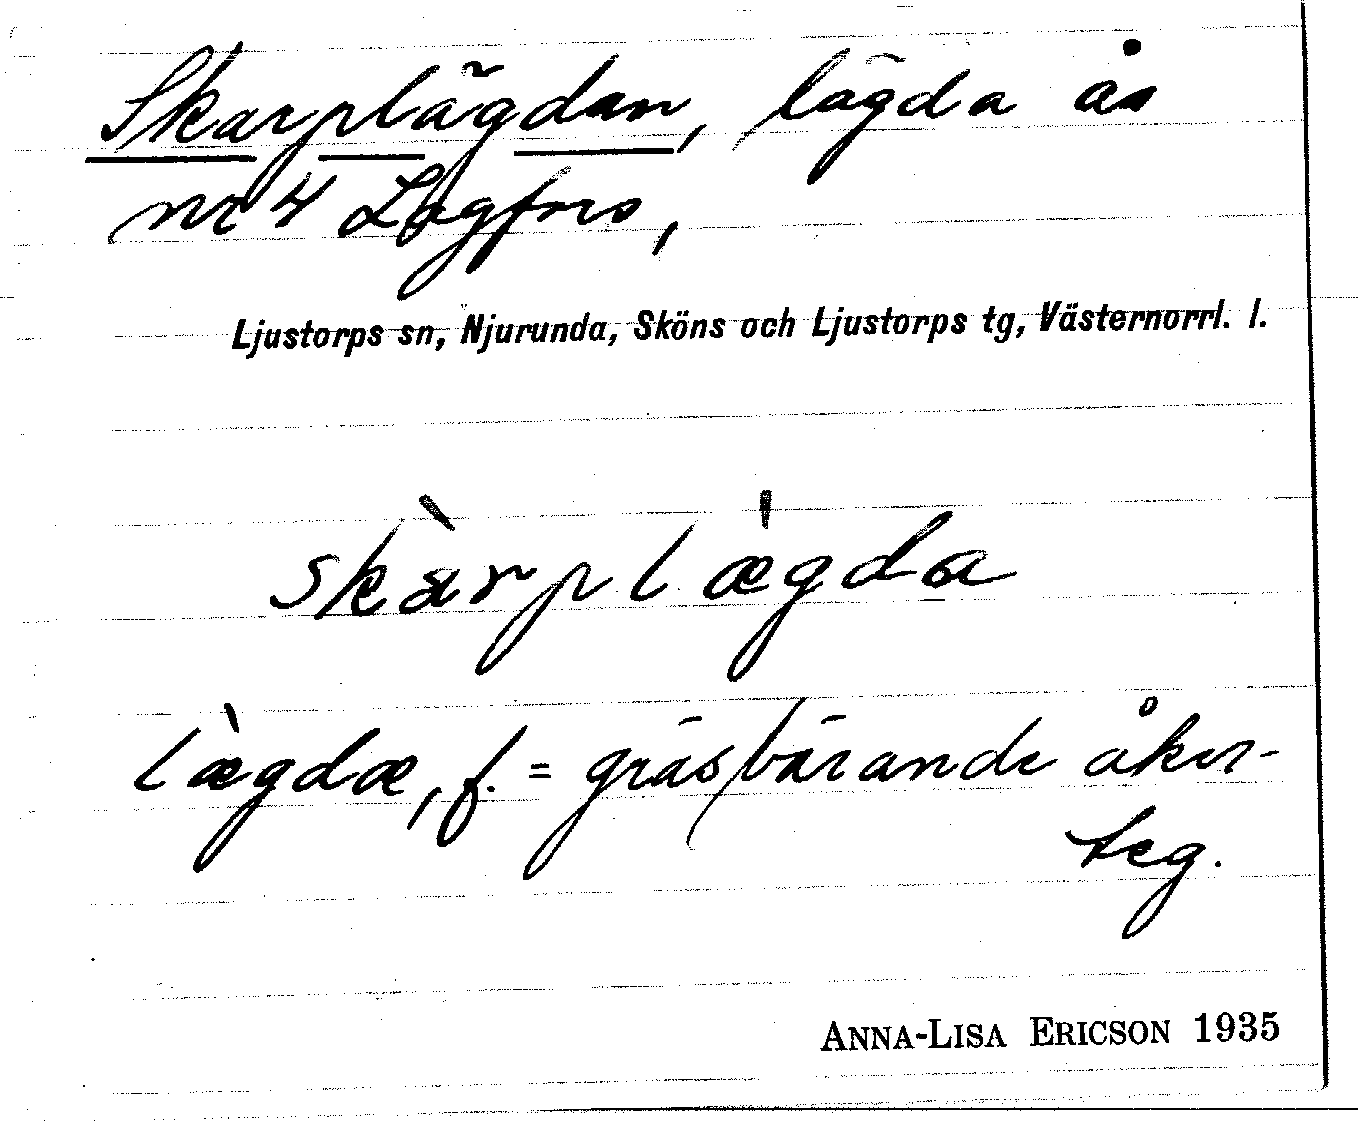 Skarplägdan, lägda å
nr 4 Lagfors,
Ljustorps sn, Njurunda, Sköns och Ljustorps tg, Västernorrl. l.
skàrplægda
lægdæ, f. = gräsbärande åker-
teg.
ANNA-LISA ERICSON 1935